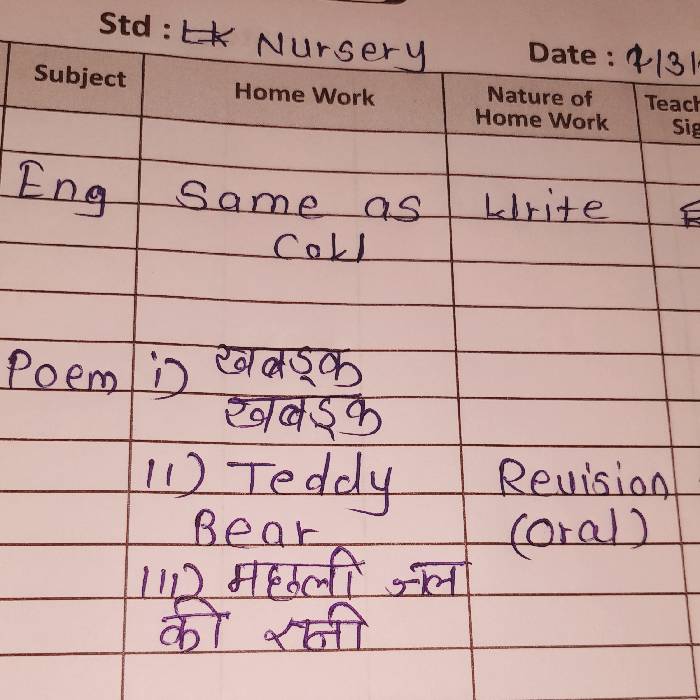 Std : Nursery Date : 7/3/
Subject Home Work Nature of Home Work Teach Sig
Eng Same as Write
Cow
Poem i) खबड़क
खबड़क
11) Teddy Revision
Bear (oral)
111) मछली जल
की रानी